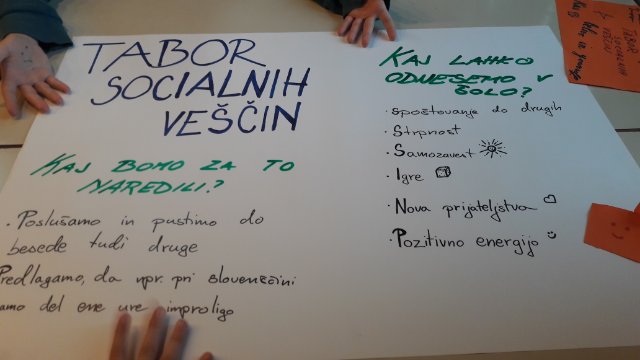 TABOR
SOCIALNIH
VEŠČIN
KAJ BOMO ZA TO
NAREDILI?
· Poslušamo in pustimo do
besede tudi druge
Predlagamo, da npr. pri slovenščini
amo del ene ure improligo
KAJ LAHKO
ODNESEMO V
ŠOLO?
· spoštovanje do drugih
· Strpnost
· Samozavest
· Igre
· Nova prijateljstva
· Pozitivno energijo
TABOR
SOCIALNIH
VEŠČIN